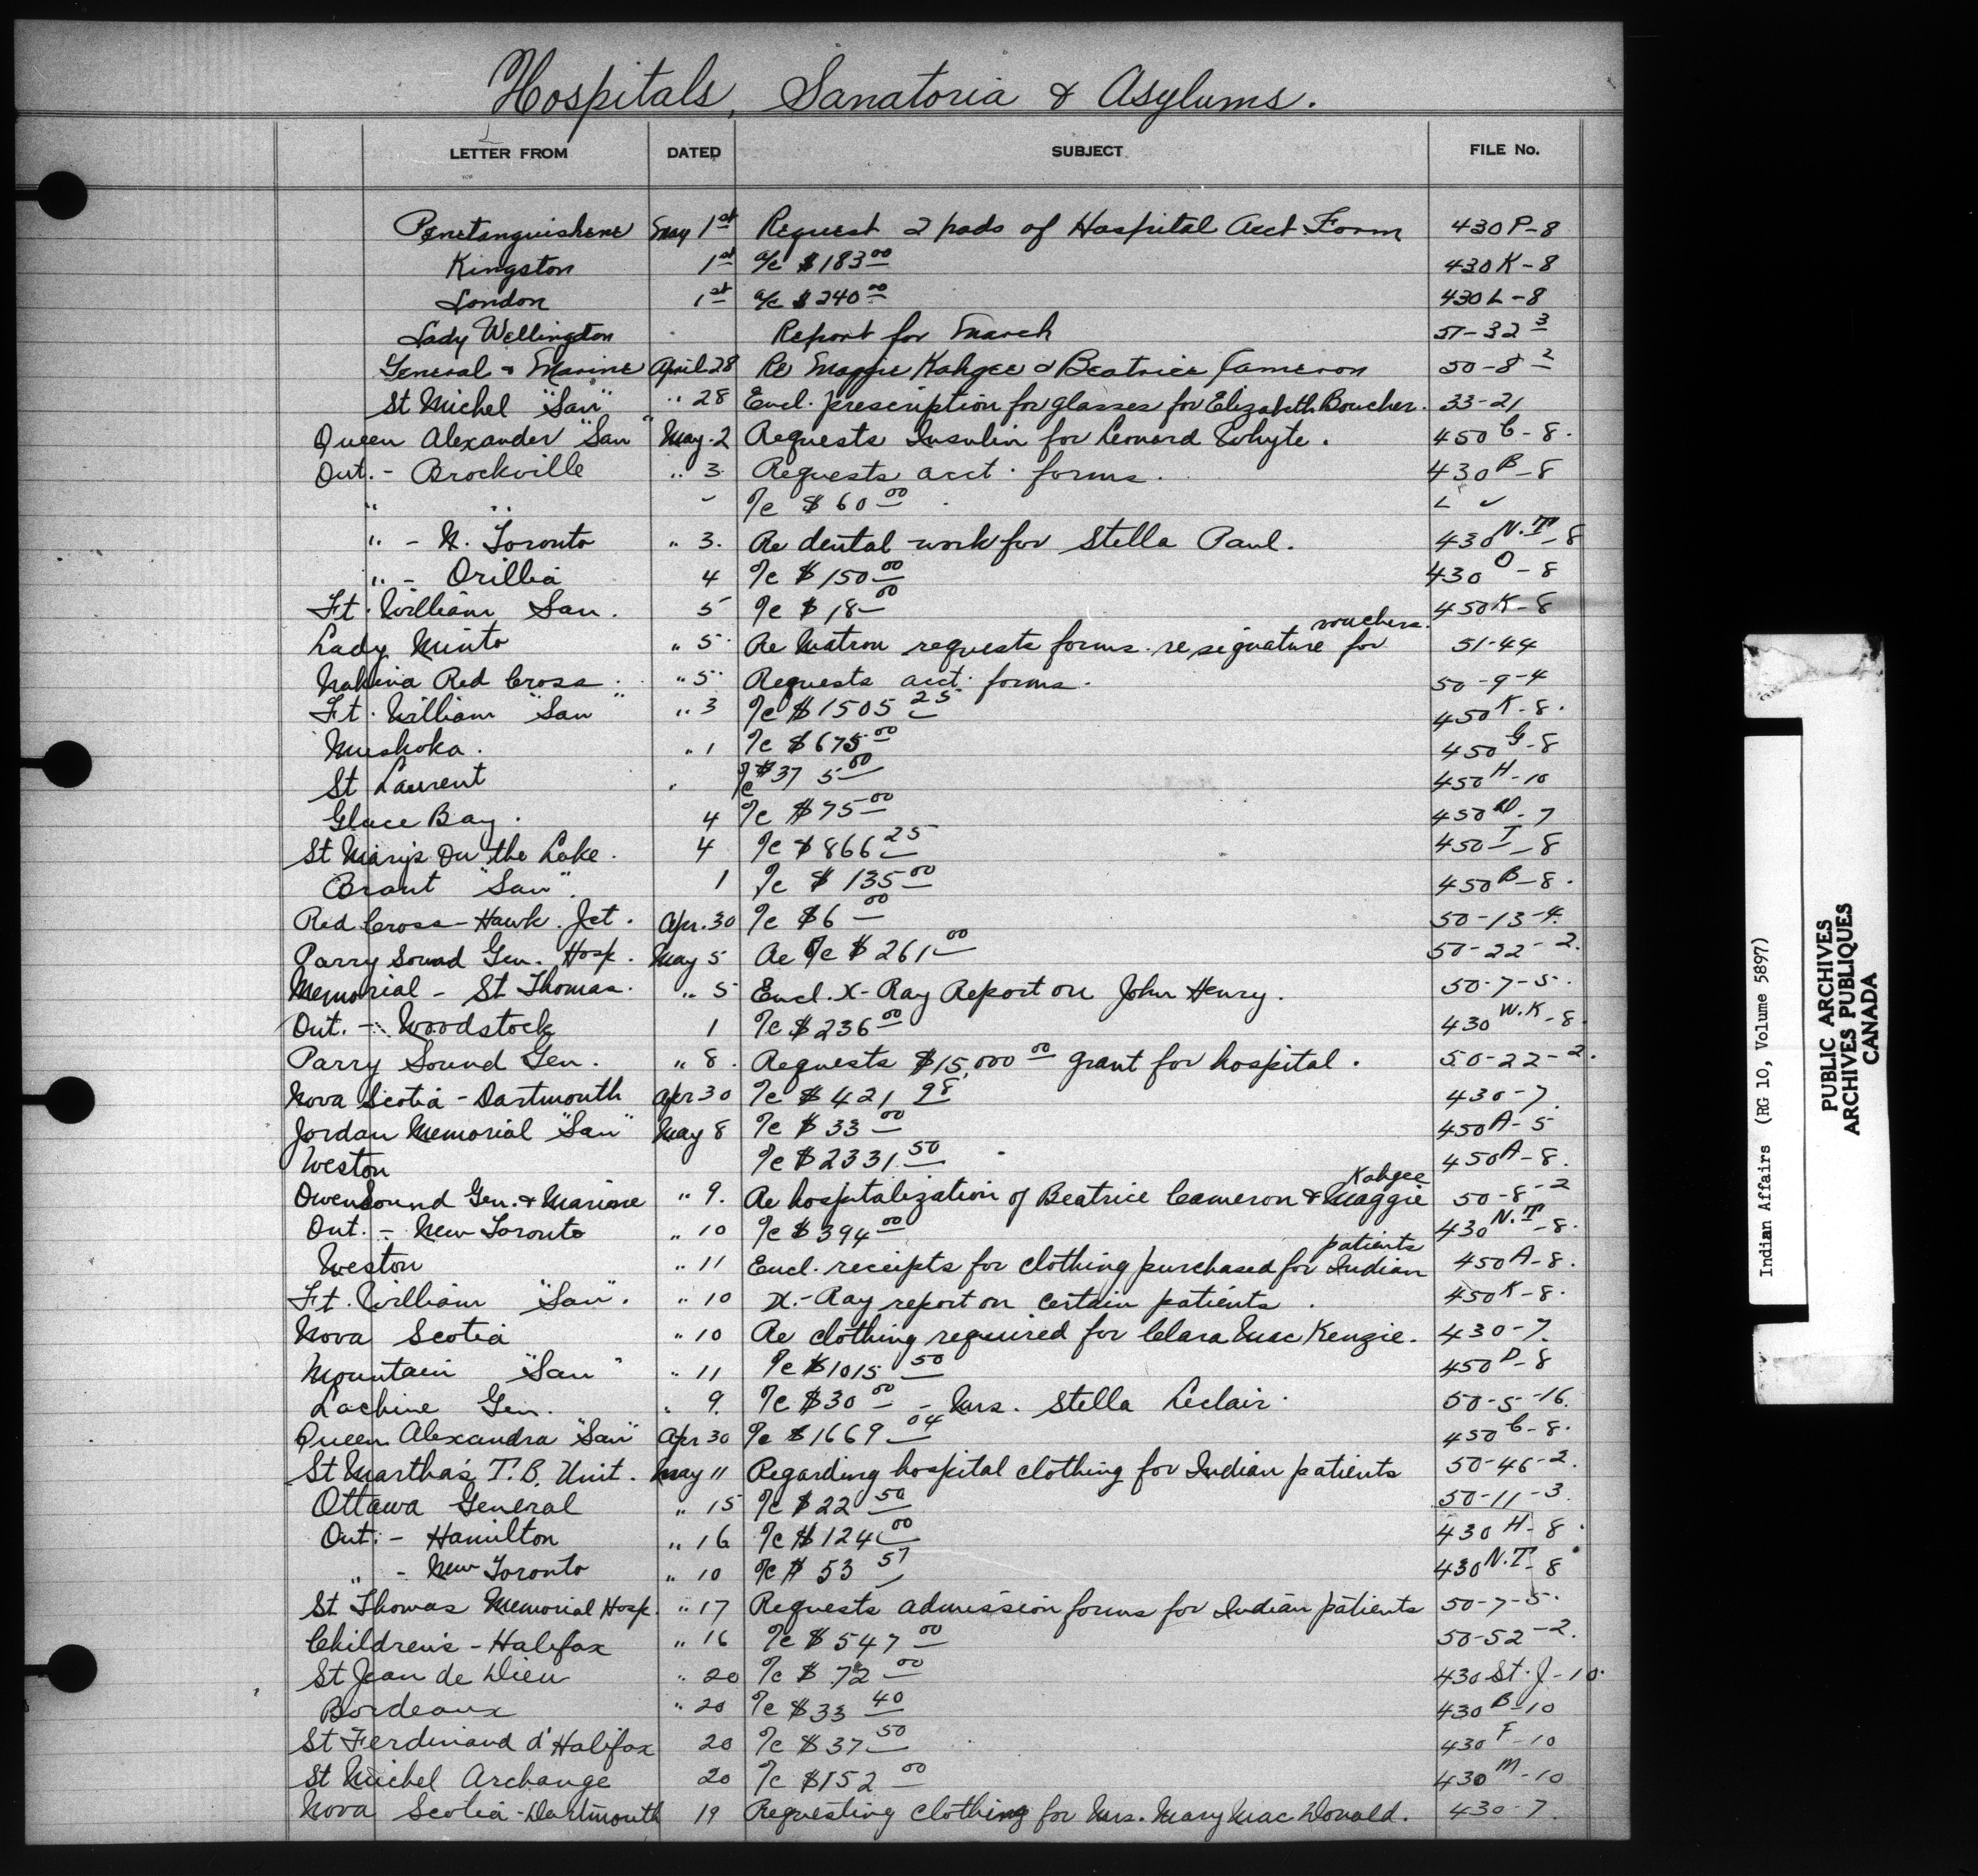 Hospitals, Sanatoria & Asylums.
LETTER FROM DATED SUBJECT FILE No.
Penetanguishene May 1st Request 2 pads of Hospital Acct Form 430P-8
Kingston 1st a/c $183 00 430K-8
London 1st a/c $240 00 430L-8
Lady Wellington Report for March 51-32 3
General & Marine April 28 Re Maggie Kahgee & Beatrice Cameron 50-8 2
St Michel "San" " 28 Encl. prescription for glasses for Elizabeth Boucher. 33-21
Queen Alexander "San" May 2 Requests Insulin for Leonard Whyte. 450 C-8.
Ont. - Brockville " 3 Requests acct. forms. 430 B-8
" " a/c $60 00
" - N. Toronto " 3. Re dental work for Stella Paul. 430 N.T-8
" - Orillia 4 a/c $150 00 430 O-8
Ft. William San. 5 a/c $18 00 450K-8
Lady Minto " 5. Re Matron requests forms. re signature for vouchers. 51-44
Nakina Red Cross. " 5. Requests acct. forms. 50-9-4
Ft. William "San" " 3 a/c $1505 25 450K-8.
Muskoka. " 1 a/c $675 00 450 G-8
St Laurent " a/c $37 5 00 450 H-10
Glace Bay. 4 a/c $75 00 450 -7
St Mary's On the Lake. 4 a/c $866 25 450 I-8
Brant "San". 1 a/c $135 00 450 B-8.
Red Cross - Hawk. Jct. Apr. 30 a/c $6 00 50-13-4.
Parry Sound Gen. Hosp. May 5 Re a/c $261 00 50-22-2.
Memorial - St Thomas. " 5 Encl. X-Ray Report on John Henry. 50-7-5.
Ont. - Woodstock 1 a/c $236 00 430 W.K-8.
Parry Sound Gen. " 8. Requests $15,000 00 grant for hospital. 50-22-2.
Nova Scotia - Dartmouth Apr 30 a/c $421 98 430-7.
Jordan Memorial "San" May 8 a/c $33 00 450A-5
Weston a/c $2331.50 450A-8.
Owen Sound Gen. & Marine " 9. Re hospitalization of Beatrice Cameron & Maggie Kahgee 50-8-2
Ont. - New Toronto " 10 a/c $394 00 430 N.T-8.
Weston " 11 Encl. receipts for clothing purchased for Indian patients 450A-8.
Ft. William "San". " 10 X-Ray report on certain patients. 450K-8.
Nova Scotia " 10 Re clothing required for Clara MacKenzie. 430-7.
Mountain "San" " 11 a/c $1015 50 450 D-8
Lachine Gen. " 9. a/c $30 00 - Mrs. Stella Leclair. 50-5-16.
Queen Alexandra "San" Apr 30 a/c $1669 04 450 C-8.
St Martha's T.B. Unit. May 11 Regarding hospital clothing for Indian patients 50-46-2.
Ottawa General " 15 a/c $22 50 50-11-3.
Ont. - Hamilton " 16 a/c $124 00 430 H-8.
" - New Toronto " 10 a/c $53 57 430 N.T-8
St Thomas Memorial Hosp. " 17 Requests admission forms for Indian patients 50-7-5.
Children's - Halifax " 16 a/c $547 00 50-52-2.
St Jean de Dieu " 20 a/c $72 00 430-St.J-10.
Bordeaux " 20 a/c $33 40 430 B-10
St Ferdinand d'Halifax 20 a/c $37 50 430 F-10
St Michel Archange 20 a/c $152 00 430 M-10
Nova Scotia - Dartmouth 19 Requesting clothing for Mrs. Mary MacDonald. 430-7.
Indian Affairs (RG 10, Volume 5897)
PUBLIC ARCHIVES
ARCHIVES PUBLIQUES
CANADA